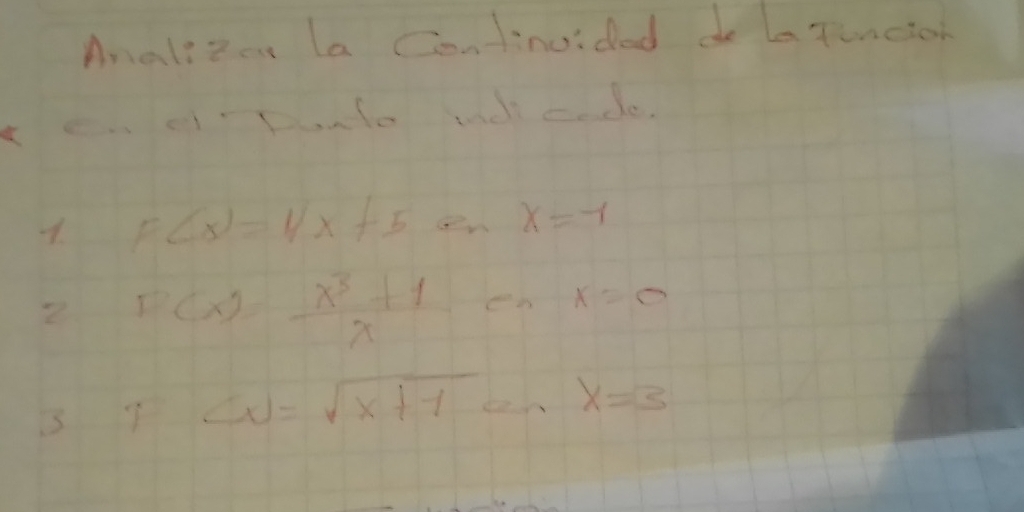 Analizar la Continuidad de la Función
en el Punto indicado.
1. F(x) = 4x + 5 en x = 1
2 F(x) = x³ + 1 / x en x = 0
3 F (x) = √x + 1 en x = 3